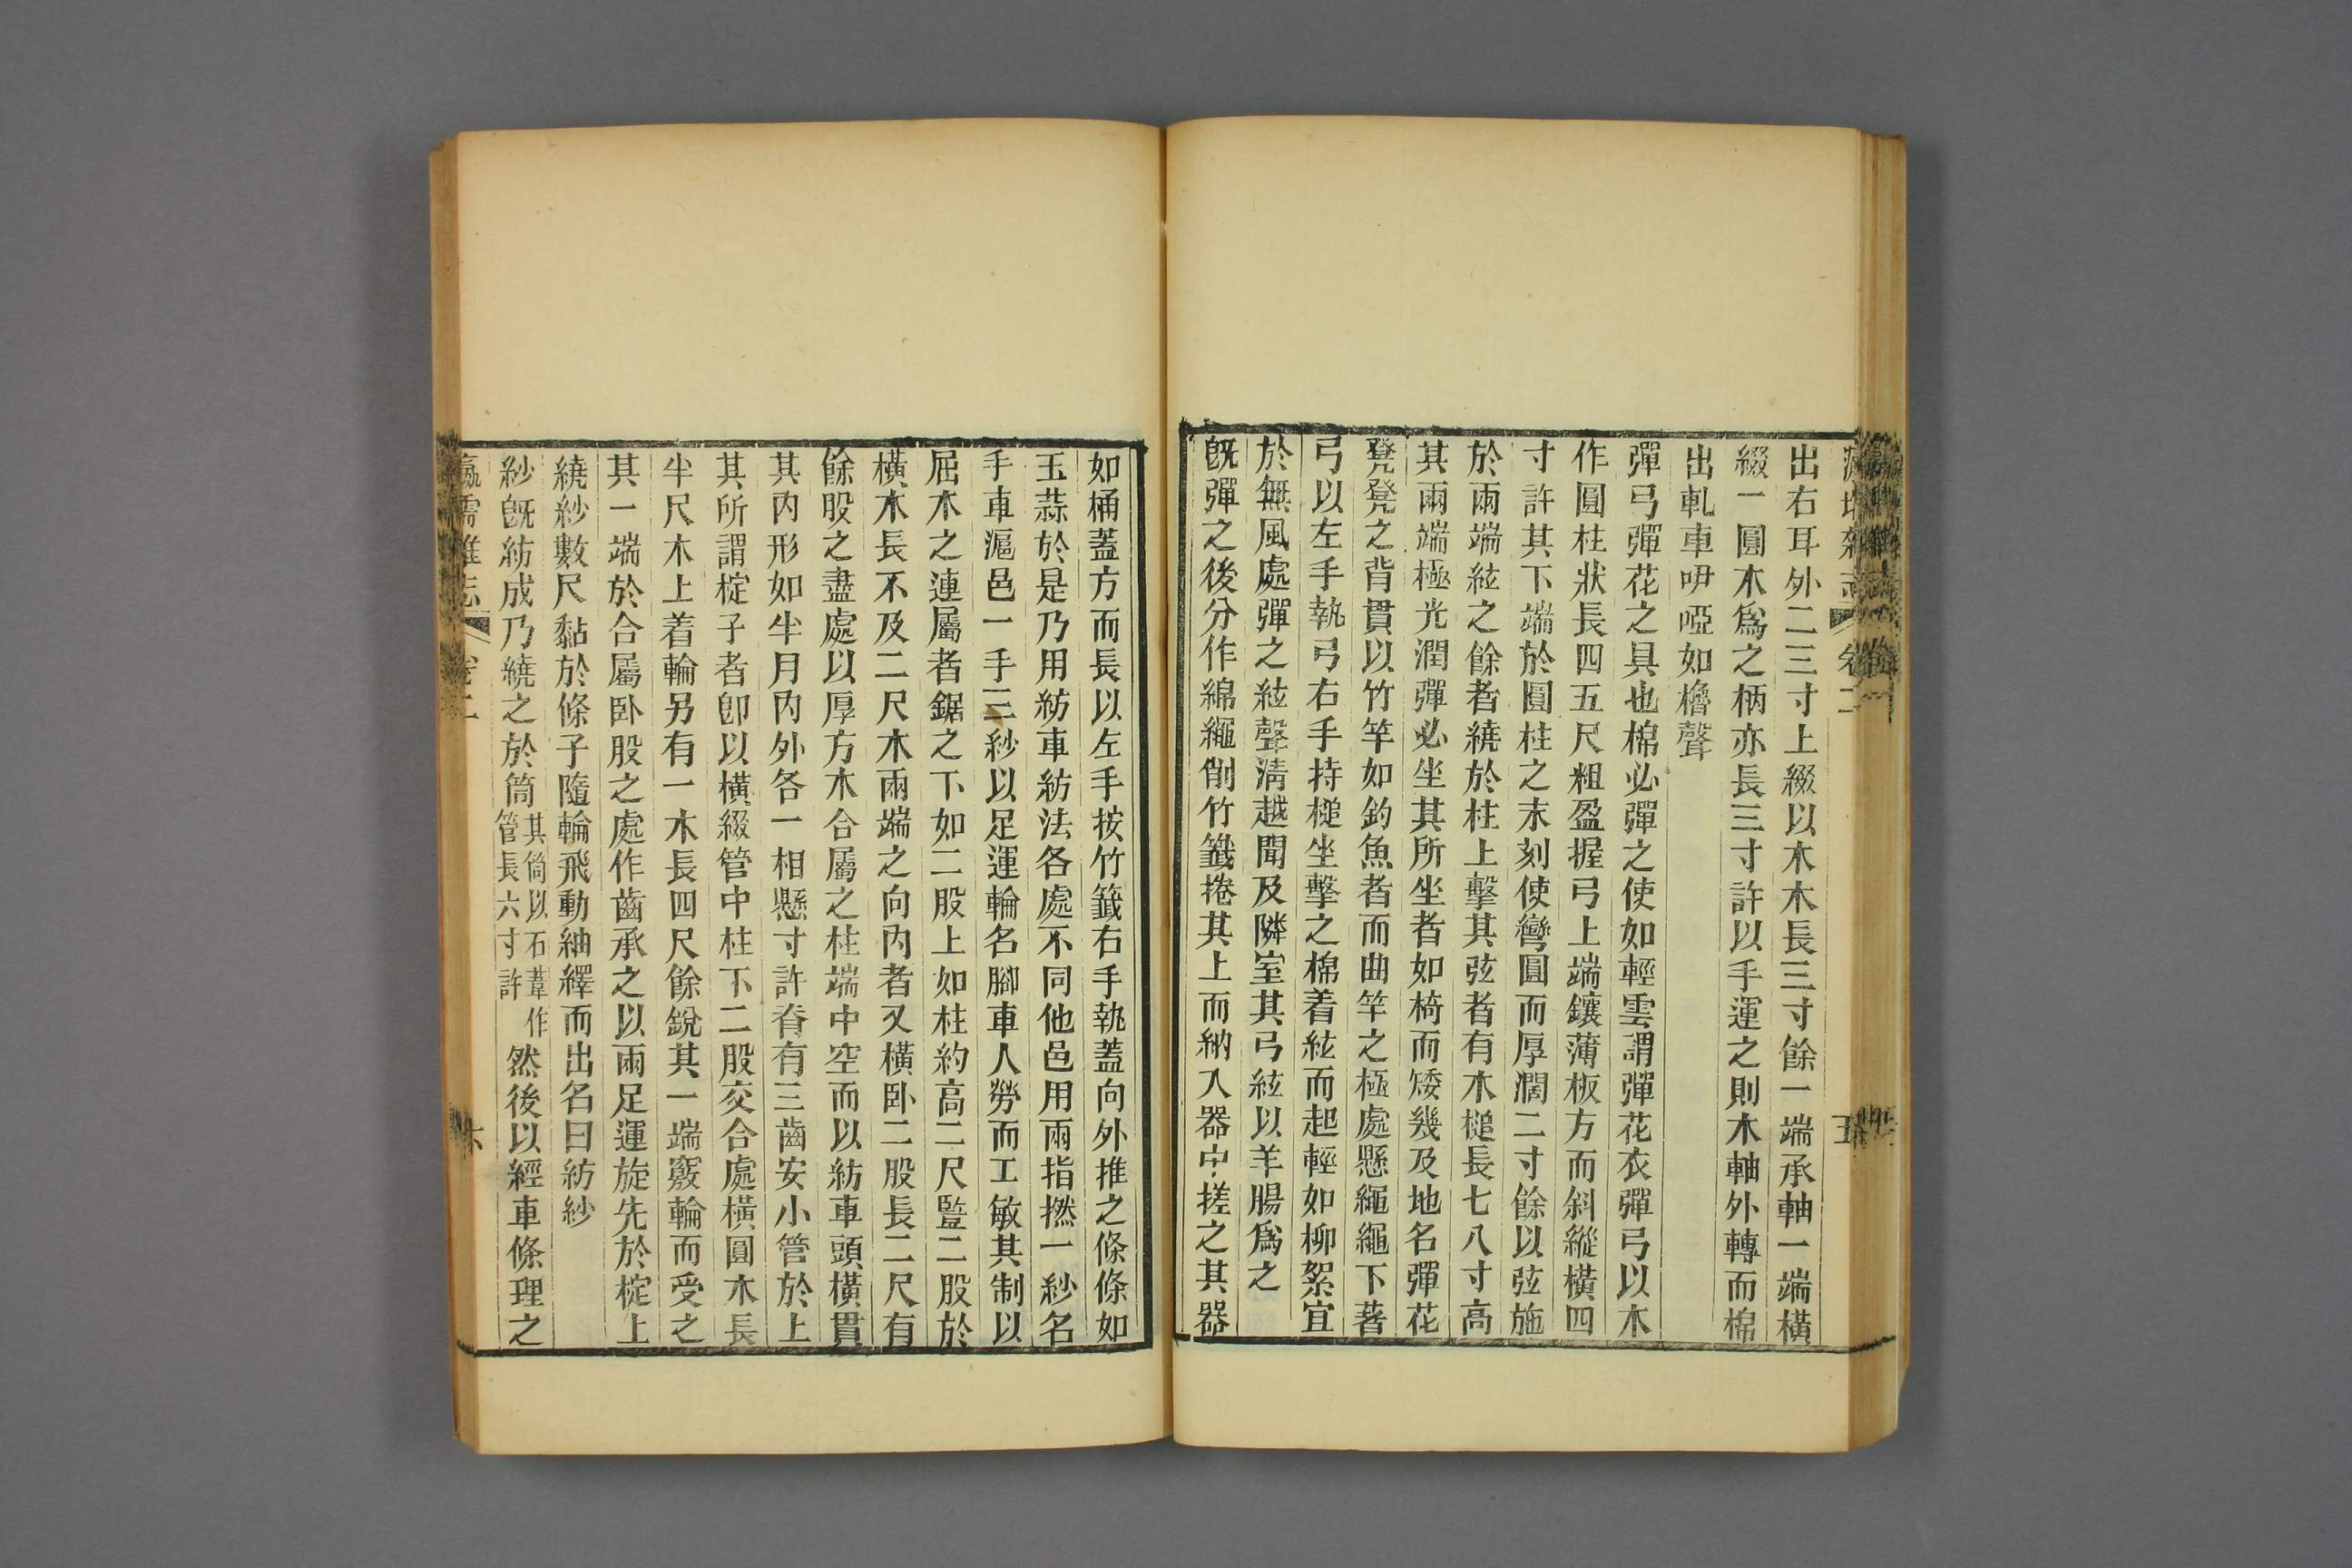 瀛壖雜志 卷二 五
出右耳外二三寸上綴以木木長三寸餘一端承軸一端橫
綴一圓木爲之柄亦長三寸許以手運之則木軸外轉而棉
出軋車咿啞如櫓聲
彈弓彈花之具也棉必彈之使如輕雲謂彈花衣彈弓以木
作圓柱狀長四五尺粗盈握弓上端鑲薄板方而斜縱橫四
寸許其下端於圓柱之末刻使彎圓而厚濶二寸餘以弦施
於兩端絃之餘者繞於柱上擊其弦者有木槌長七八寸高
其兩端極光潤彈必坐其所坐者如椅而矮幾及地名彈花
凳凳之背貫以竹竿如釣魚者而曲竿之極處懸繩繩下著
弓以左手執弓右手持槌坐擊之棉着絃而起輕如柳絮宜
於無風處彈之絃聲淸越聞及隣室其弓絃以羊腸爲之
旣彈之後分作綿繩削竹籖捲其上而納入器中搓之其器
如桶蓋方而長以左手按竹籖右手執蓋向外推之條條如
玉蒜於是乃用紡車紡法各處不同他邑用兩指撚一紗名
手車滬邑一手三紗以足運輪名腳車人勞而工敏其制以
屈木之連屬者鋸之下如二股上如柱約高二尺豎二股於
橫木長不及二尺木兩端之向內者又橫臥二股長二尺有
餘股之盡處以厚方木合屬之柱端中空而以紡車頭橫貫
其內形如半月內外各一相懸寸許脊有三齒安小管於上
其所謂椗子者卽以橫綴管中柱下二股交合處橫圓木長
半尺木上着輪另有一木長四尺餘銳其一端竅輪而受之
其一端於合屬卧股之處作齒承之以兩足運旋先於椗上
繞紗數尺黏於條子隨輪飛動紬繹而出名曰紡紗
紗旣紡成乃繞之於筒其筒以石葦作管長六寸許然後以經車條理之
瀛壖雜志 卷二 六